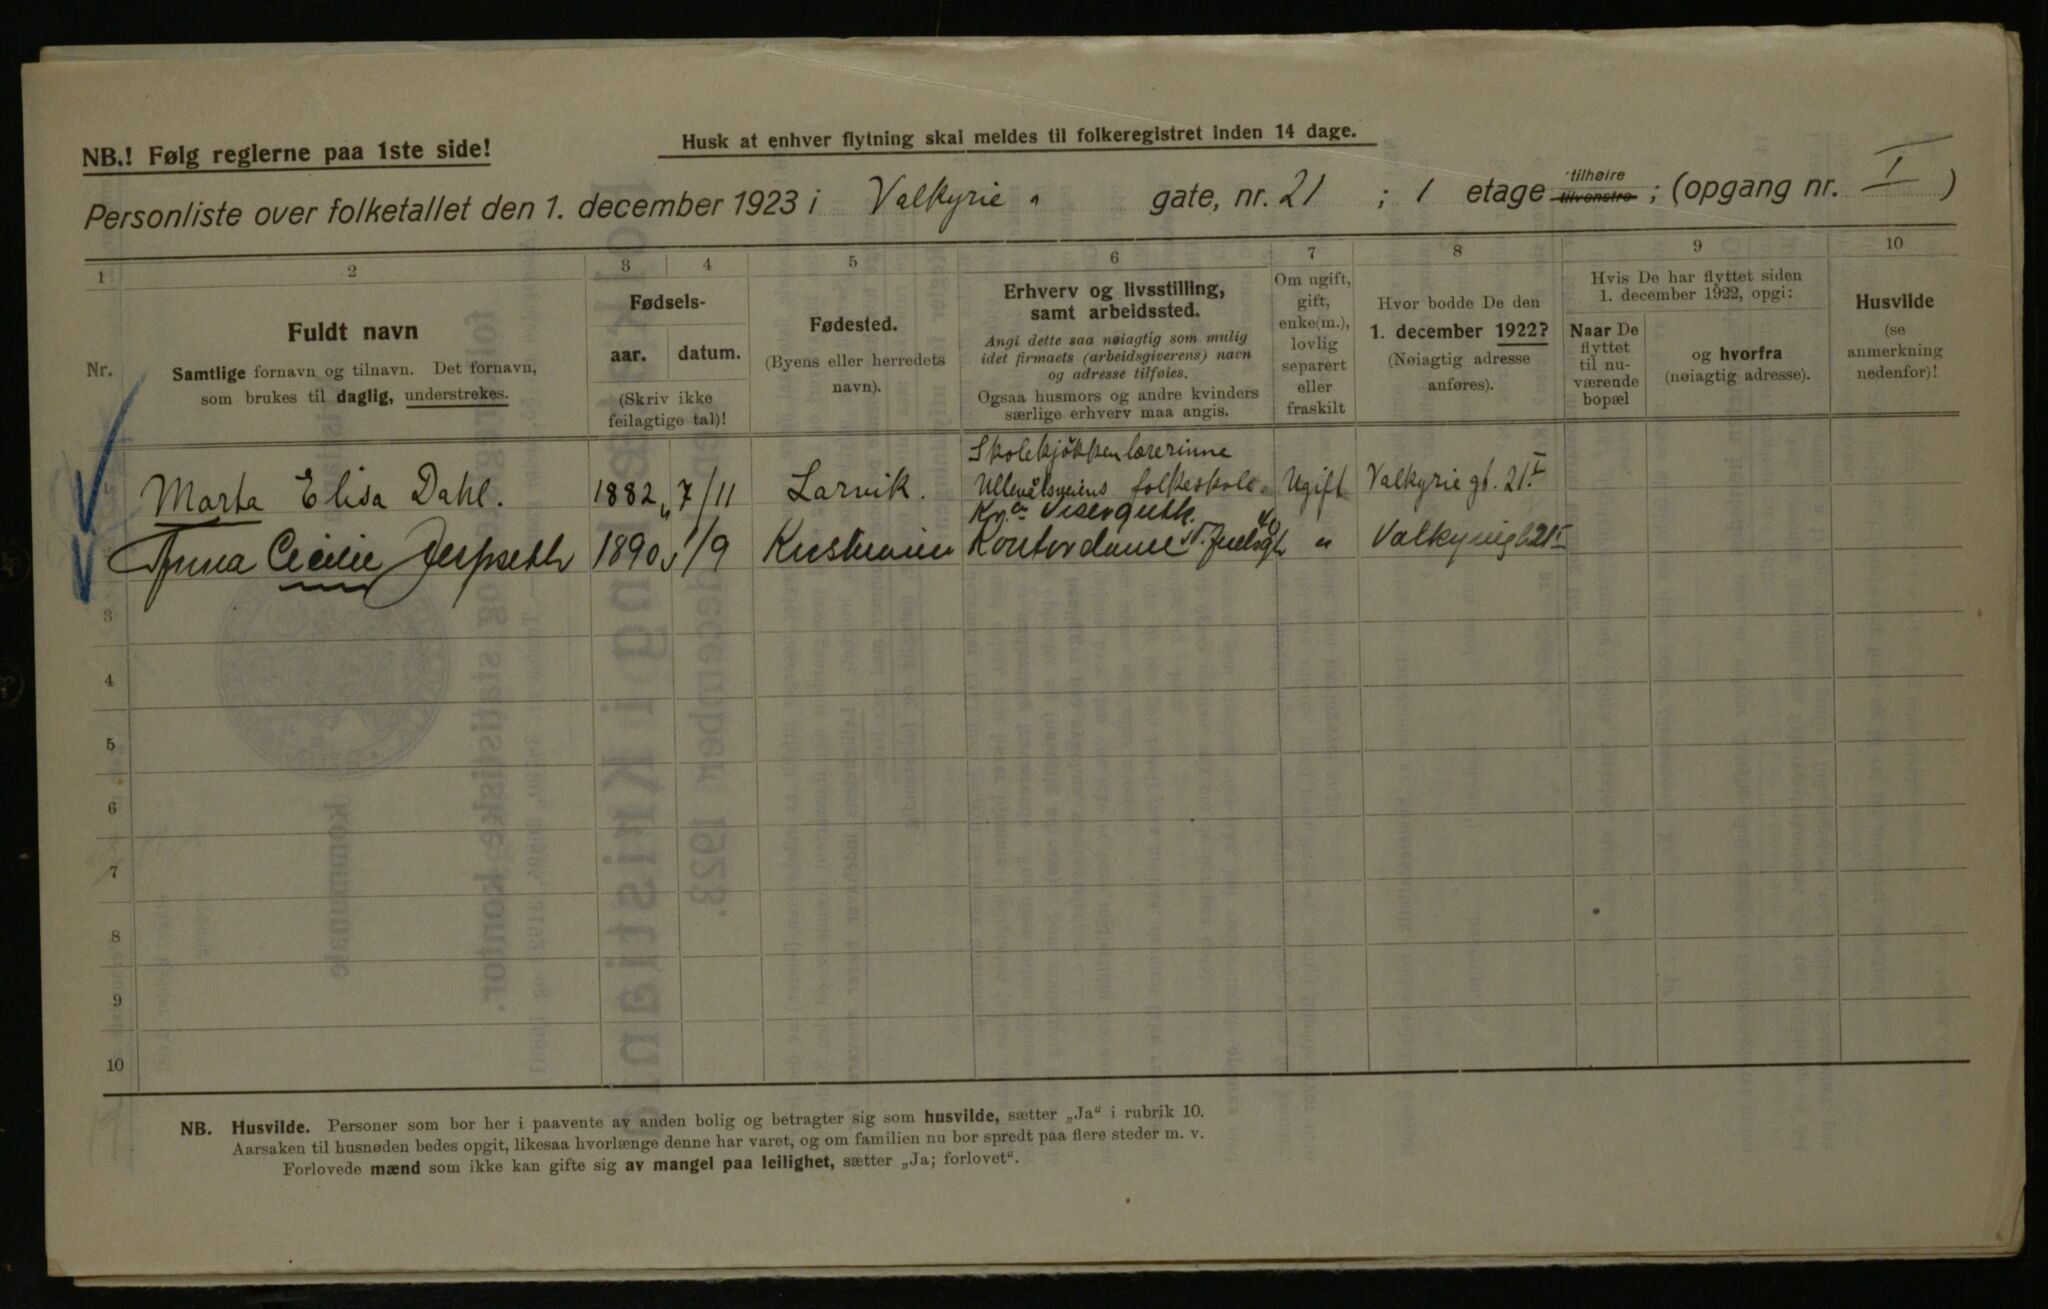 NB.! Følg reglerne paa 1ste side!
Husk at enhver flytning skal meldes til folkeregistret inden 14 dage.
Personliste over folketallet den 1. december 1923 i Valkyrie " gate, nr. 21 ; 1 etage tilhøire tilvenstre ; (opgang nr. I )
1 2 3 4 5 6 7 8 9 10
Nr.
Fuldt navn
Samtlige fornavn og tilnavn. Det fornavn,
som brukes til daglig, understrekes.
Fødsels-
aar. datum.
(Skriv ikke
feilagtige tal)!
Fødested.
(Byens eller herredets
navn).
Erhverv og livsstilling,
samt arbeidssted.
Angi dette saa nøiagtig som mulig
idet firmaets (arbeidsgiverens) navn
og adresse tilføies.
Ogsaa husmors og andre kvinders
særlige erhverv maa angis.
Om ugift,
gift,
enke(m.),
lovlig
separert
eller
fraskilt
Hvor bodde De den
1. december 1922?
(Nøiagtig adresse
anføres).
Hvis De har flyttet siden
1. december 1922, opgi:
Naar De
flyttet
til nu-
værende
bopæl
og hvorfra
(nøiagtig adresse).
Husvilde
(se
anmerkning
nedenfor)!
Skolekjøkkenlærerinne
1 Marta Elisa Dahl. 1882 7/11 Larvik. Ullevålsveiens folkeskole. Ugift Valkyrie gt. 21 I
Kr.a Visergutk.
Anna Cecilie 1890 1/9 Kristiania Kontordame N. Juelsgt 40 " Valkyriegt 21 I
3
4
5
6
7
8
9
10
NB. Husvilde. Personer som bor her i paavente av anden bolig og betragter sig som husvilde, sætter „Ja“ i rubrik 10.
Aarsaken til husnøden bedes opgit, likesaa hvorlænge denne har varet, og om familien nu bor spredt paa flere steder m. v.
Forlovede mænd som ikke kan gifte sig av mangel paa leilighet, sætter „Ja; forlovet“.